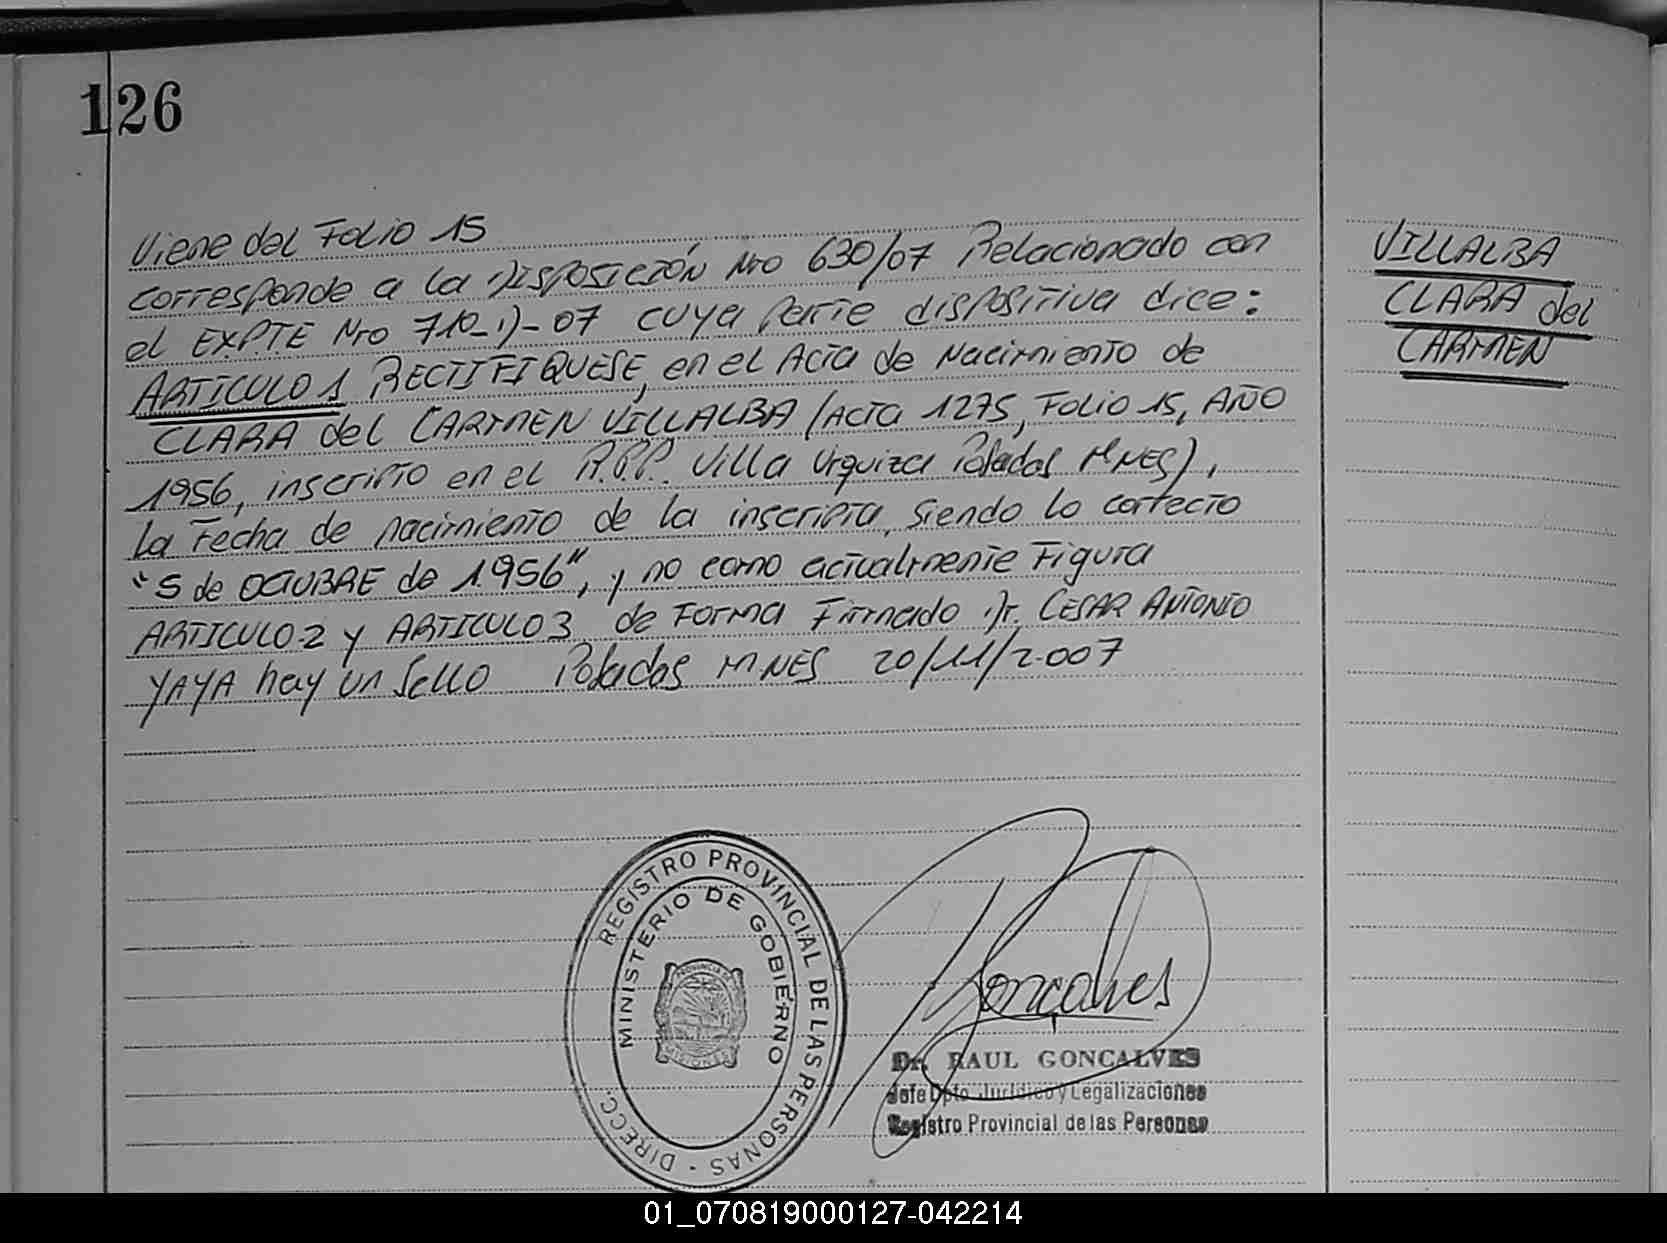 126
Viene del Folio 15
corresponde a la DISPOSICIÓN Nro 630/07 Relacionado con
el EXPTE Nro 710-D-07 cuya parte dispositiva dice:
ARTICULO 1 RECTIFIQUESE, en el Acta de Nacimiento de
CLARA del CARMEN VILLALBA (Acta 1275, Folio 15, AÑO
1956, inscripto en el R.P.P. Villa Urquiza Posadas MNES),
la Fecha de nacimiento de la inscripta, siendo lo correcto
"5 de OCTUBRE de 1956", y no como actualmente Figura
ARTICULO 2 y ARTICULO 3 de Forma Firmado Dr. CESAR ANTONIO
YAYA hay un Sello Posadas MNES 20/11/2.007
VILLALBA
CLARA del
CARMEN
REGISTRO PROVINCIAL DE LAS PERSONAS - DIRECC.
MINISTERIO DE GOBIERNO
PROVINCIA DE
MISIONES
Goncalves
Dr. RAUL GONCALVES
Jefe Dpto. Jurídico y Legalizaciones
Registro Provincial de las Personas
01_070819000127-042214